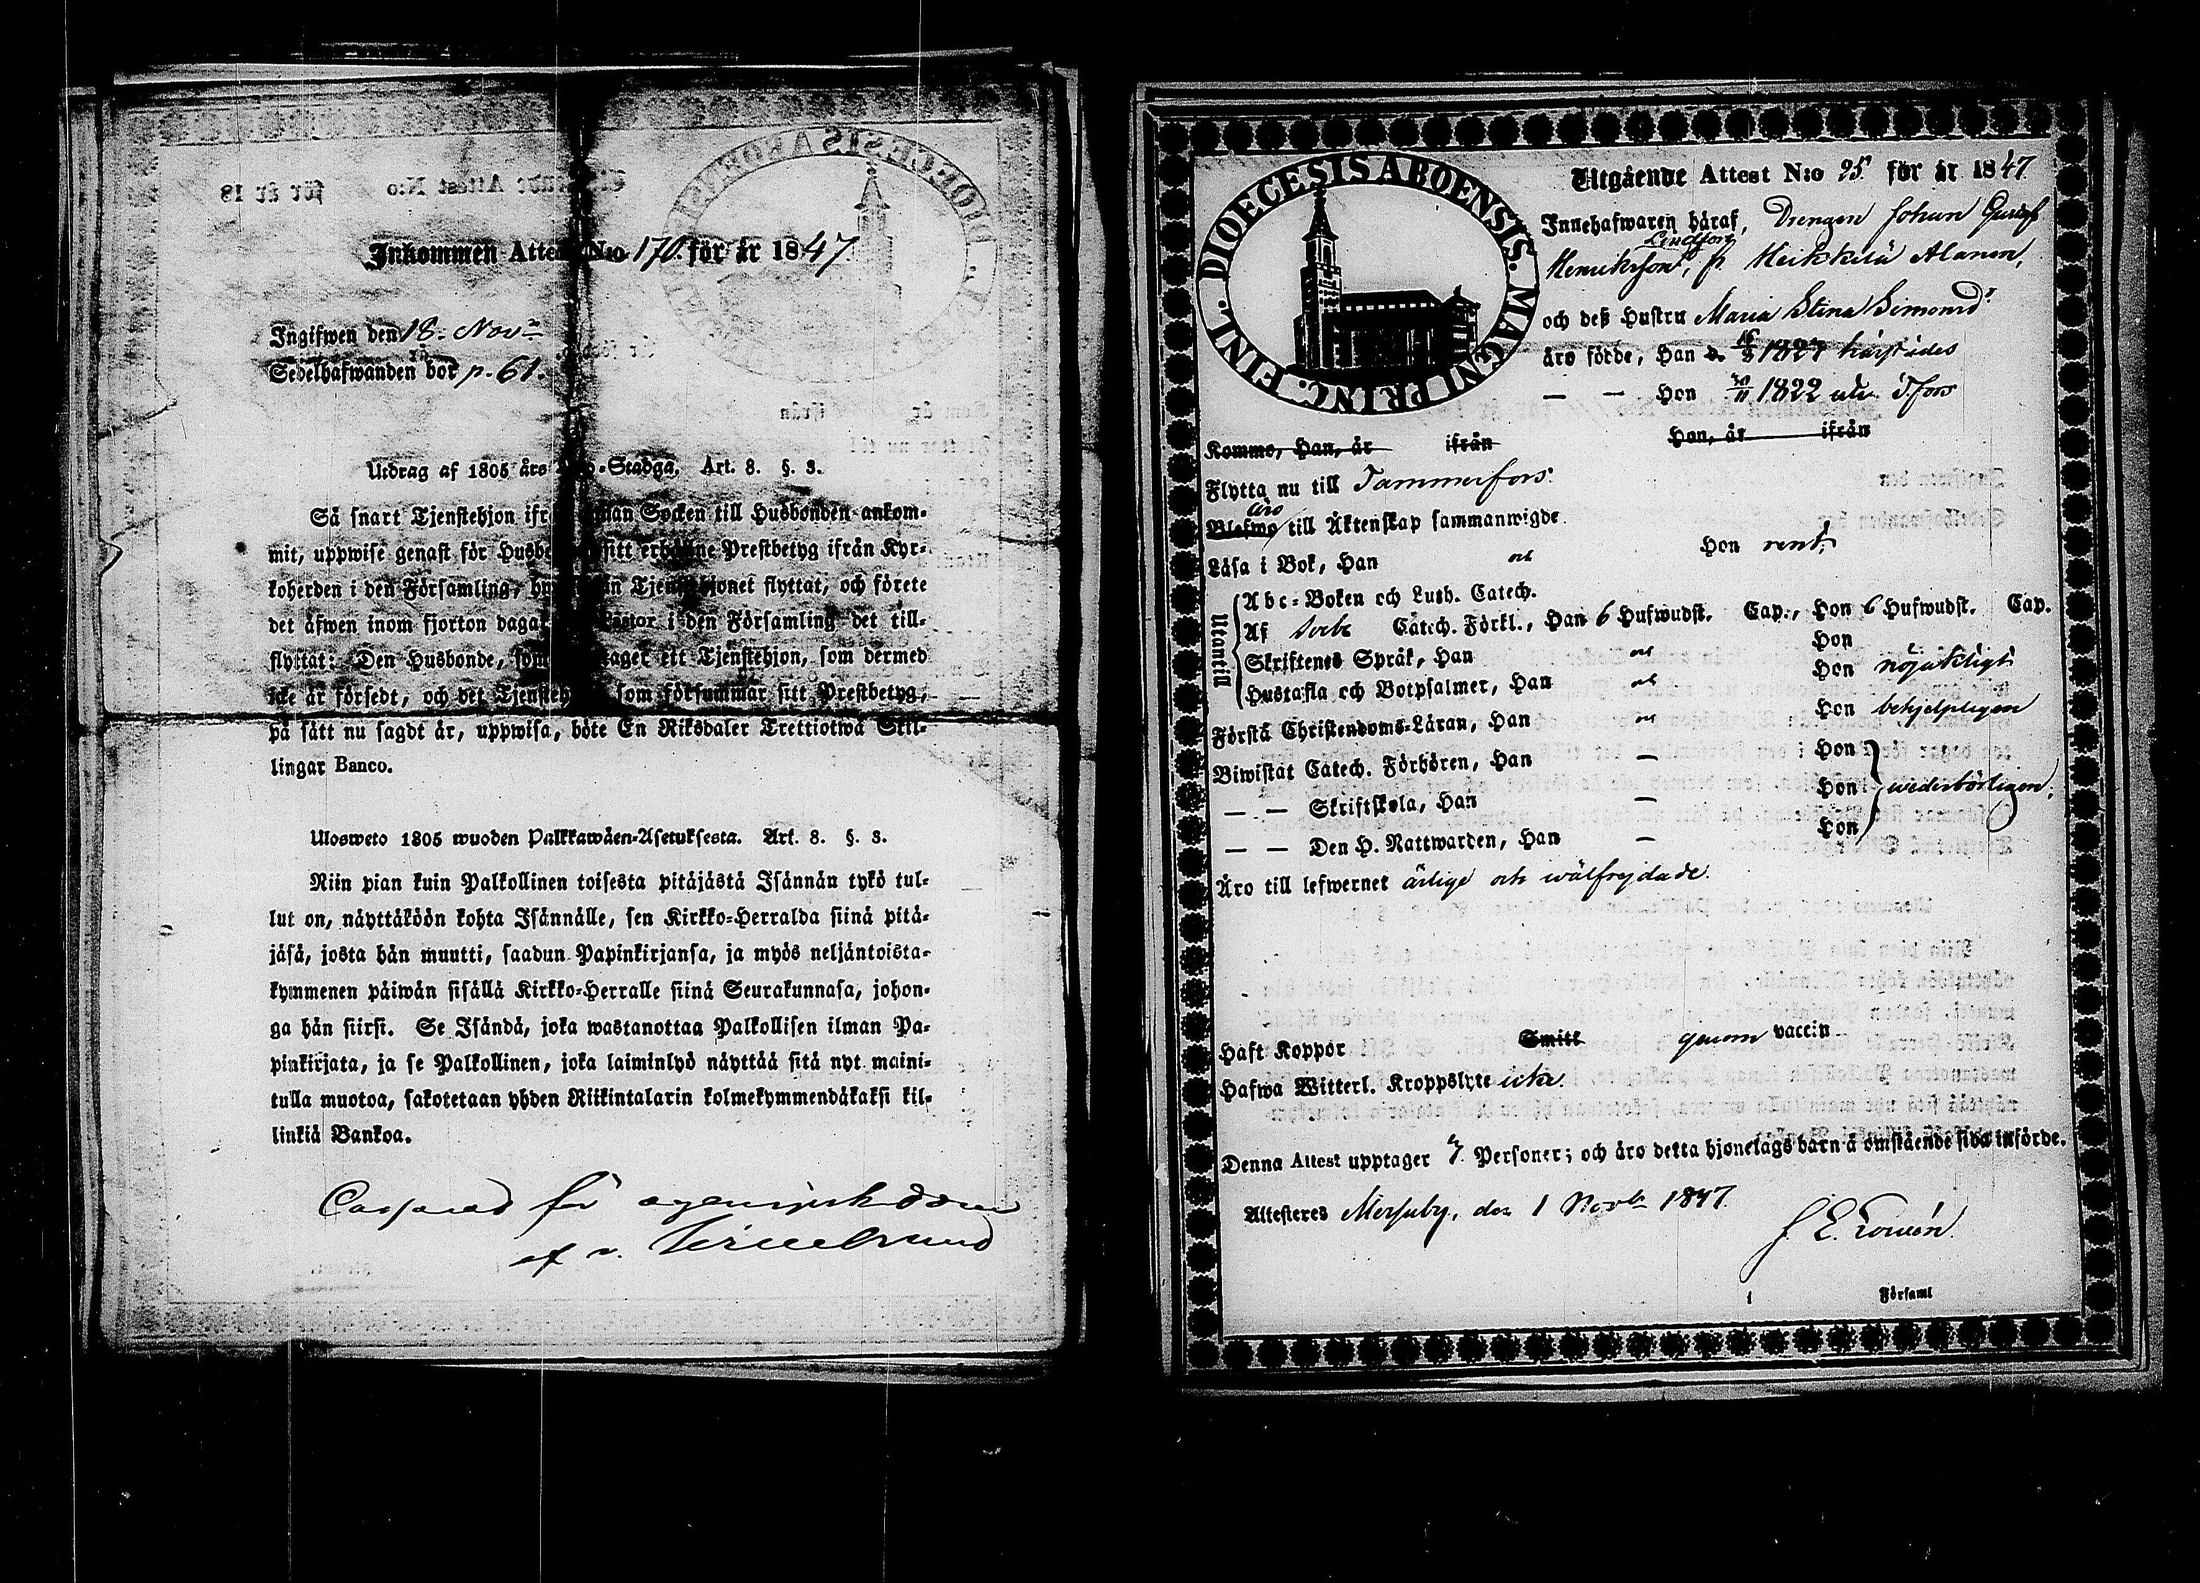 Inkommen Attest N:o 170. för år 1847
Ingifwen den 18. Nov
Sedelhafwanden bor p. 61.
Utdrag af 1805 års -Stadga. Art. 8. §. 3.
Så snart Tjenstehjon ifrån annan Socken till Husbonden ankom-
mit, uppwise genast för Husbonden sitt erhållne Prestbetyg ifrån Kyr-
koherden i den Församling, hwarifrån Tjenstehjonet flyttat, och förete
det äfwen inom fjorton dagar Pastor i den Församling det till-
flyttat: Den Husbonde, som antager ett Tjenstehjon, som dermed
icke är försedt, och det Tjenstehjon, som försummar sitt Prestbetyg,
på sätt nu sagdt är, uppwisa, böte En Riksdaler Trettiotwå Skil-
lingar Banco.
Ulosweto 1805 wuoden Palkkawäen-Asetuksesta. Art. 8. §. 3.
Niin pian kuin Palkollinen toisesta pitäjästä Isännän tykö tul-
lut on, näyttäköön kohta Isännälle, sen Kirkko-Herralda siinä pitä-
jäsä, josta hän muutti, saadun Papinkirjansa, ja myös neljäntoista-
kymmenen päiwän sisällä Kirkko-Herralle siinä Seurakunnasa, johon-
ga hän siirsi. Se Isändä, joka wastanottaa Palkollisen ilman Pa-
pinkirjata, ja se Palkollinen, joka laiminlyö näyttää sitä nyt maini-
tulla muotoa, sakotetaan yhden Riikintalarin kolmekymmendäkaksi kil-
linkiä Bankoa.
för
DIOECESIS ABOENSIS. MAGNI PRINC. FINL.
Utgående Attest N:o 95 för år 1847
Innehafwaren häraf, Drengen Johan Gustaf
Lindfors
Henriksson, fr. Heikkilä Alanen,
och deß Hustru Maria Stina Simonsd:r
äro födde, Han d. 1827 härstädes
— — Hon 1822 uti T.fors
Kommo, Han, år ifrån Hon, år ifrån
Flytta nu till Tammerfors.
äro
Blefwo till Äktenskap sammanwigde
Läsa i Bok, Han och Hon rent,
Utantill
Abc-Boken och Luth. Catech.
Af Catech. Förkl., Han 6 Hufwudst. Cap., Hon 6 Hufwudst. Cap.
Skriftenes Språk, Han och Hon
Hustafla och Botpsalmer, Han och Hon nöjaktigt
Förstå Christendoms-Läran, Han och Hon behjelpligen
Biwistat Catech. Förhören, Han — Hon
— — Skriftskola, Han — Hon wederbörligen,
— — Den H. Nattwarden, Han — Hon
Äro till lefwernet ärlige och wälfrejdade.
Haft Koppor Smitt genom vaccin
Hafwa Witterl. Kroppslyte icke.
Denna Attest upptager Personer; och äro detta hjonelags barn å omstående sida införde.
Attesteres Messuby, den 1 Novbr 1847.
i Församl